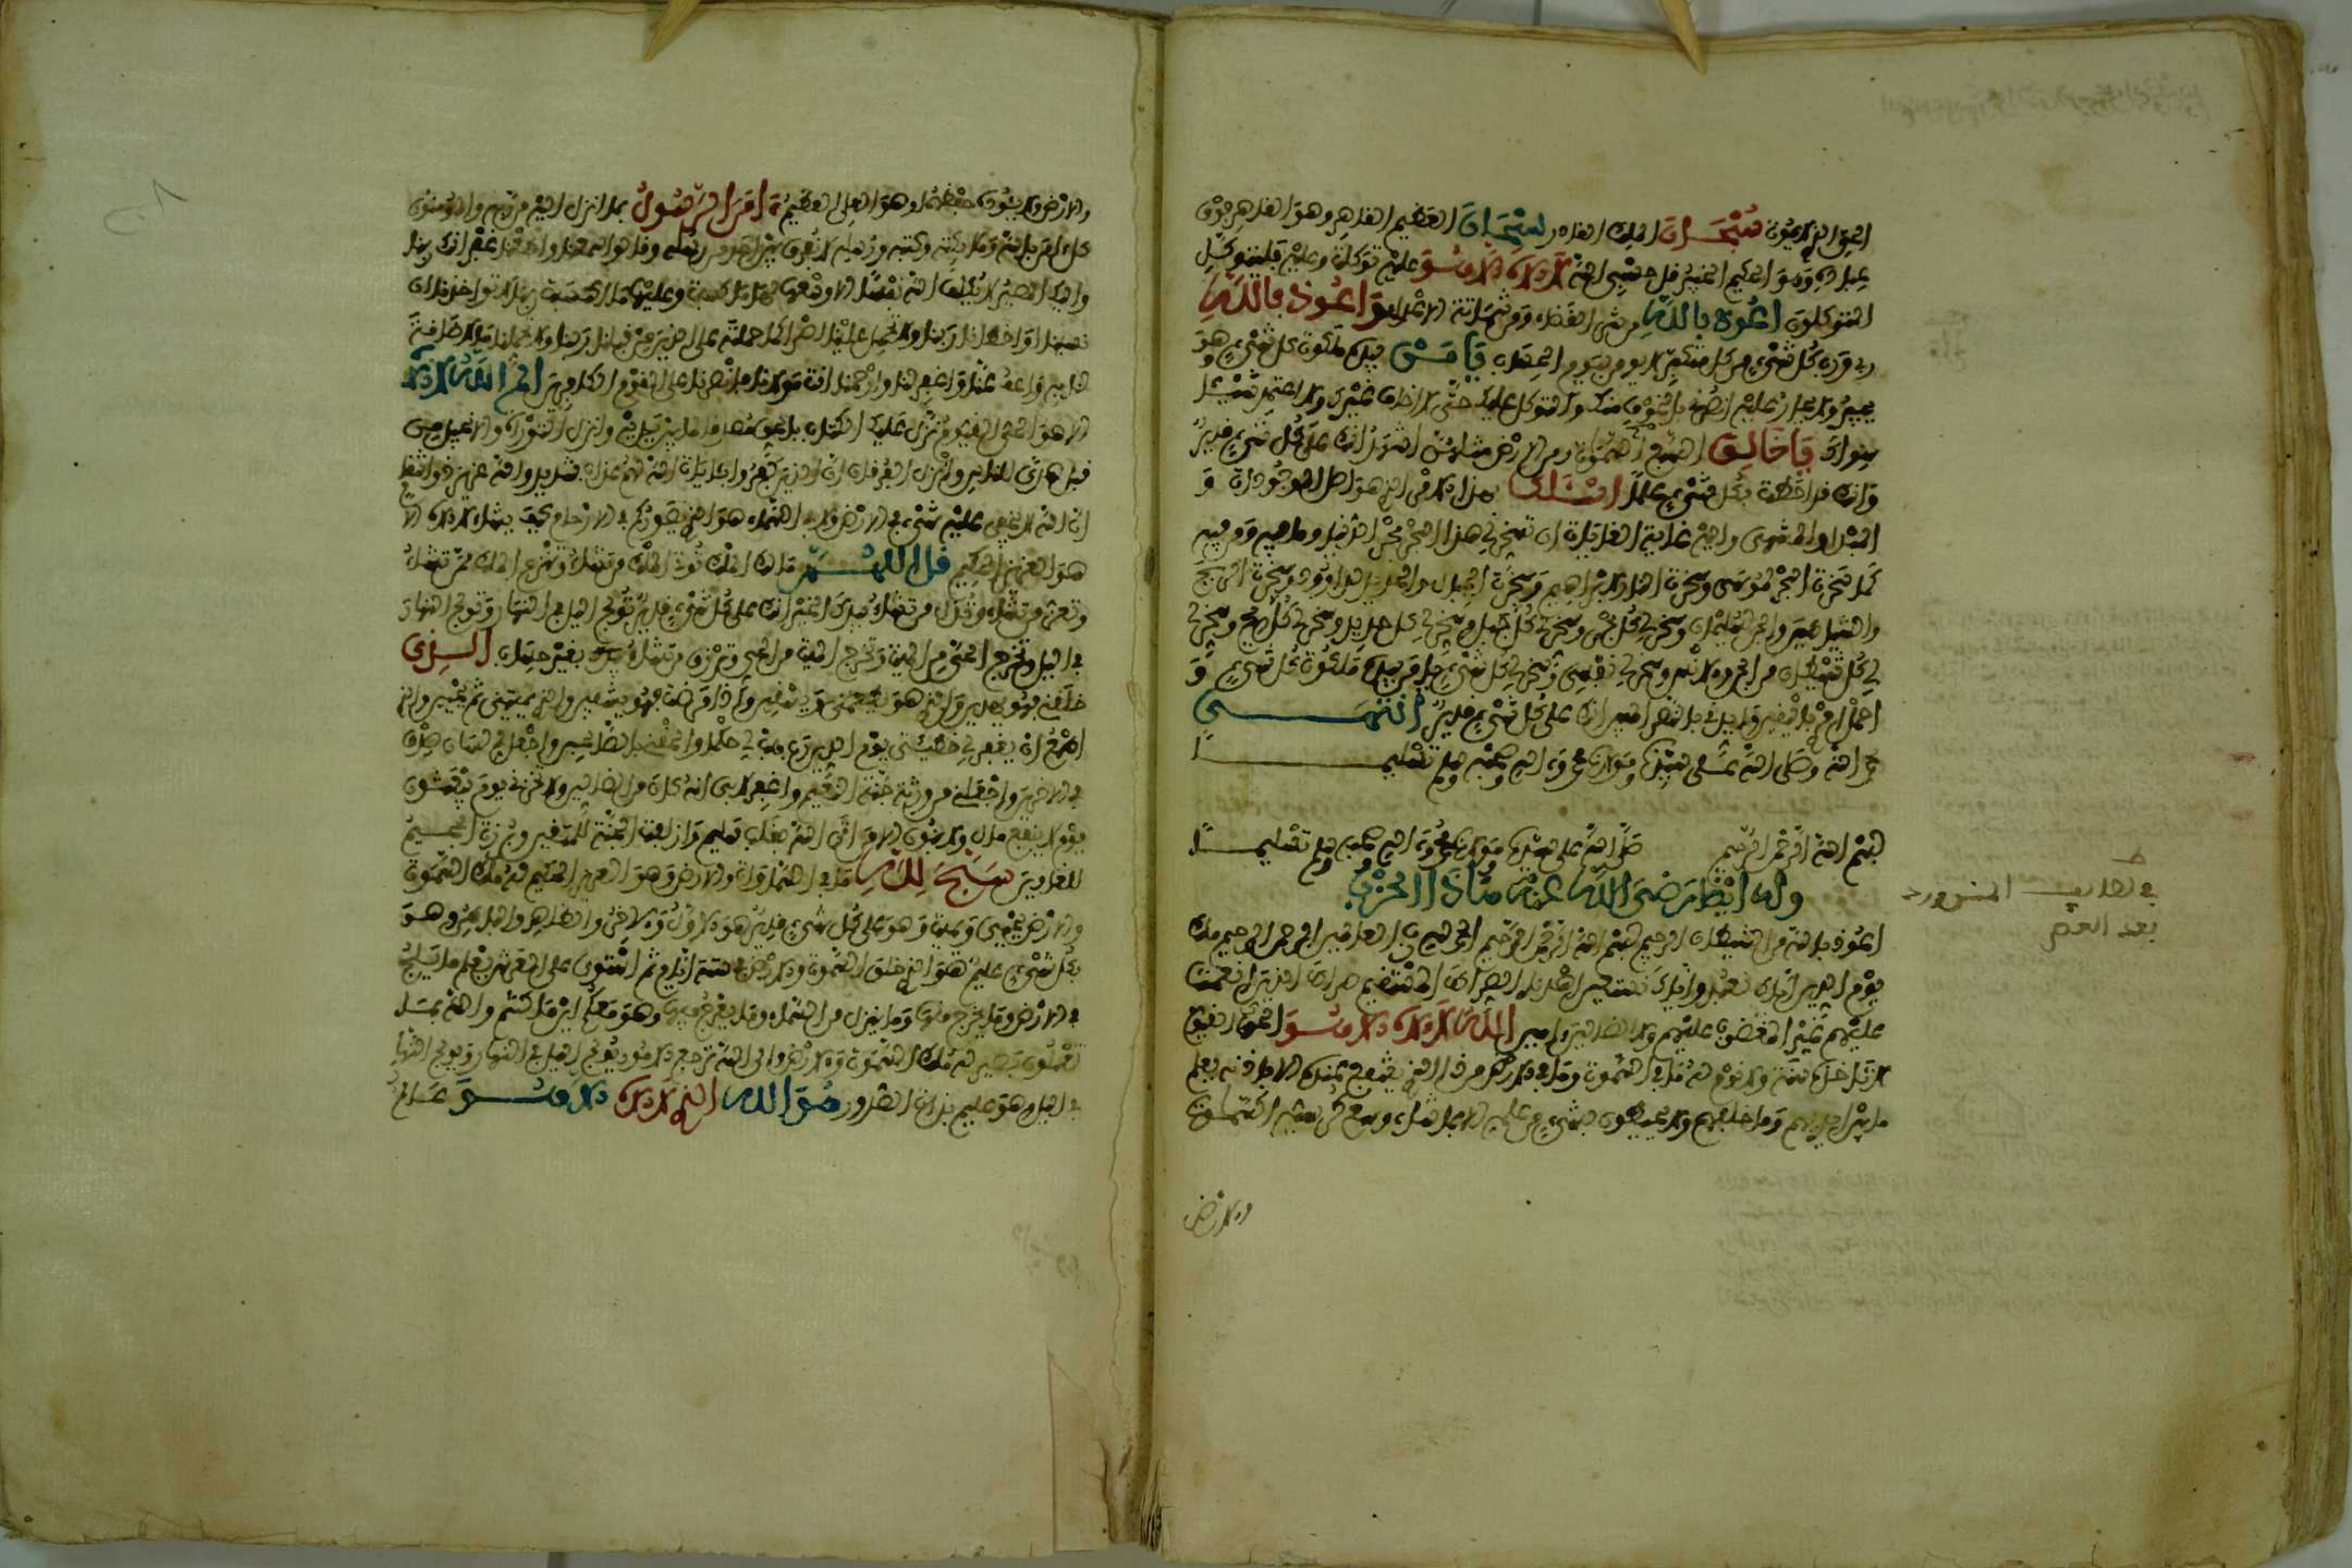 الحي الذي لا يموت سبحان الملك القادر سبحان العظيم القاهر وهو القاهر فوق
عباده وهو الحكيم الخبير قل حسبي الله لا إله إلا هو عليه توكلت وعليه فليتوكل
المتوكلون اعوذ بالله من شر القضاء ومن شماتة الاعداء واعوذ بالله
ربي ورب كل شيء من كل متكبر لا يومن بيوم الحساب يا من بيده ملكوت كل شيء وهو
يجير ولا يجار عليه انصرني بالخوف منك والتوكل عليك حتى لا اخاف غيرك ولا اعبد شيئا
سواك يا خالق السبع السموات ومن الارض مثلهن اشهد انك على كل شيء قدير
وانك قد احطت بكل شيء علما اسئلك بهذا الامر الذي هو اصل الموجودات و
المبدا والمنتهى واليه غاية الغايات ان تسخر لي هذا البحر بحر الدنيا وما فيه ومن فيه
كما سخرت البحر لموسى وسخرت النار لابراهيم وسخرت الجبال والحديد لداوود وسخرت الريح
والشياطين والجن لسليمان وسخر لي كل بحر وسخر لي كل جبل وسخر لي كل حديد وسخر لي كل ريح وسخر لي
كل شيطان من الجن والانس وسخر لي نفسي وسخر لي كل شيء يا من بيده ملكوت كل شيء و
احملني باليقين وايدني بالنصر المبين انك على كل شيء قدير انتهى
بحمد الله وصلى الله على سيدنا ومولانا محمد وءاله وصحبه وسلم تسليما
بسم الله الرحمن الرحيم صلى الله على سيدنا ومولانا محمد وءاله وصحبه وسلم تسليما
وله ايضا رضي الله عنه هذا الحزب
اعوذ بالله من الشيطان الرجيم بسم الله الرحمن الرحيم الحمد لله رب العالمين الرحمن الرحيم ملك
يوم الدين اياك نعبد واياك نستعين اهدنا الصراط المستقيم صراط الذين انعمت
عليهم غير المغضوب عليهم ولا الضالين ءامين الله لا إله إلا هو الحي القيوم
لا تاخذه سنة ولا نوم له ما في السموات وما في الارض من ذا الذي يشفع عنده الا باذنه يعلم
ما بين ايديهم وما خلفهم ولا يحيطون بشيء من علمه الا بما شاء وسع كرسيه السموات
والارض
بعد العصر
والارض ولا يئوده حفظهما وهو العلي العظيم ءامن الرسول بما انزل اليه من ربه والمومنون
كل ءامن بالله وملائكته وكتبه ورسله لا نفرق بين احد من رسله وقالوا سمعنا واطعنا غفرانك ربنا
واليك المصير لا يكلف الله نفسا الا وسعها لها ما كسبت وعليها ما اكتسبت ربنا لا تواخذنا ان
نسينا او اخطانا ربنا ولا تحمل علينا اصرا كما حملته على الذين من قبلنا ربنا ولا تحملنا ما لا طاقة
لنا به واعف عنا واغفر لنا وارحمنا انت مولانا فانصرنا على القوم الكافرين الم الله لا إله
الا هو الحي القيوم نزل عليك الكتاب بالحق مصدقا لما بين يديه وانزل التورية والانجيل من
قبل هدى للناس وانزل الفرقان ان الذين كفروا بايات الله لهم عذاب شديد والله عزيز ذو انتقام
ان الله لا يخفى عليه شيء في الارض ولا في السماء هو الذي يصوركم في الارحام كيف يشاء لا إله الا
هو العزيز الحكيم قل اللهم مالك الملك توتي الملك من تشاء وتنزع الملك ممن تشاء
وتعز من تشاء وتذل من تشاء بيدك الخير انك على كل شيء قدير تولج اليل في النهار وتولج النهار
في اليل وتخرج الحي من الميت وتخرج الميت من الحي وترزق من تشاء بغير حساب الذي
خلقني فهو يهدين والذي هو يطعمني ويسقين واذا مرضت فهو يشفين والذي يميتني ثم يحيين والذي
اطمع ان يغفر لي خطيئتي يوم الدين رب هب لي حكما والحقني بالصالحين واجعل لي لسان صدق
في الاخرين واجعلني من ورثة جنة النعيم واغفر لابي انه كان من الضالين ولا تخزني يوم يبعثون
يوم لا ينفع مال ولا بنون الا من اتى الله بقلب سليم وازلفت الجنة للمتقين وبرزت الجحيم
للغاوين سبح لله ما في السموات والارض وهو العزيز الحكيم له ملك السموات
والارض يحيي ويميت وهو على كل شيء قدير هو الاول والاخر والظاهر والباطن وهو
بكل شيء عليم هو الذي خلق السموات والارض في ستة ايام ثم استوى على العرش يعلم ما يلج
في الارض وما يخرج منها وما ينزل من السماء وما يعرج فيها وهو معكم اين ما كنتم والله بما
تعملون بصير له ملك السموات والارض والى الله ترجع الامور يولج اليل في النهار ويولج النهار
في اليل وهو عليم بذات الصدور هو الله الذي لا إله إلا هو عالم